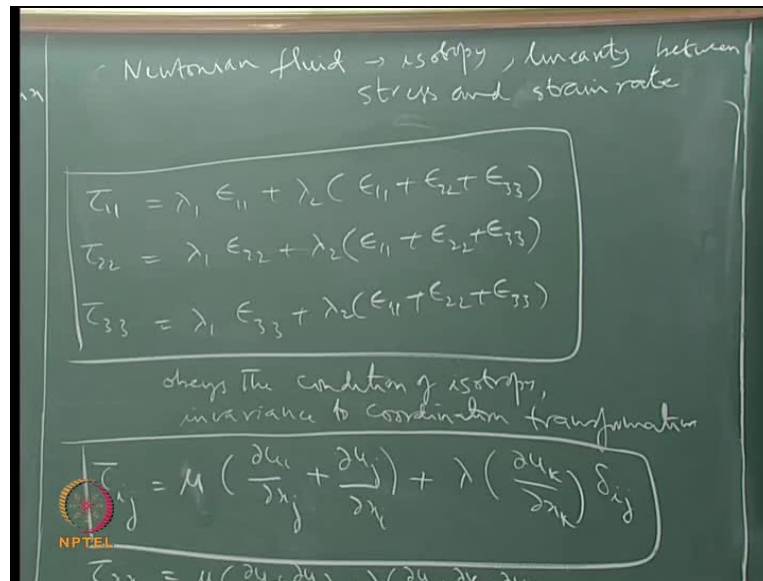 Newtonian fluid → isotropy, linearity between
stress and strain rate
τ₁₁ = λ₁ ϵ₁₁ + λ₂( ϵ₁₁ + ϵ₂₂ + ϵ₃₃)
τ₂₂ = λ₁ ϵ₂₂ + λ₂(ϵ₁₁ + ϵ₂₂ + ϵ₃₃)
τ₃₃ = λ₁ ϵ₃₃ + λ₂(ϵ₁₁ + ϵ₂₂ + ϵ₃₃)
obeys The condition of isotropy,
invariance to coordination transformation
τᵢⱼ = μ (∂uᵢ/∂xⱼ + ∂uⱼ/∂xᵢ) + λ (∂uₖ/∂xₖ) δᵢⱼ
NPTEL